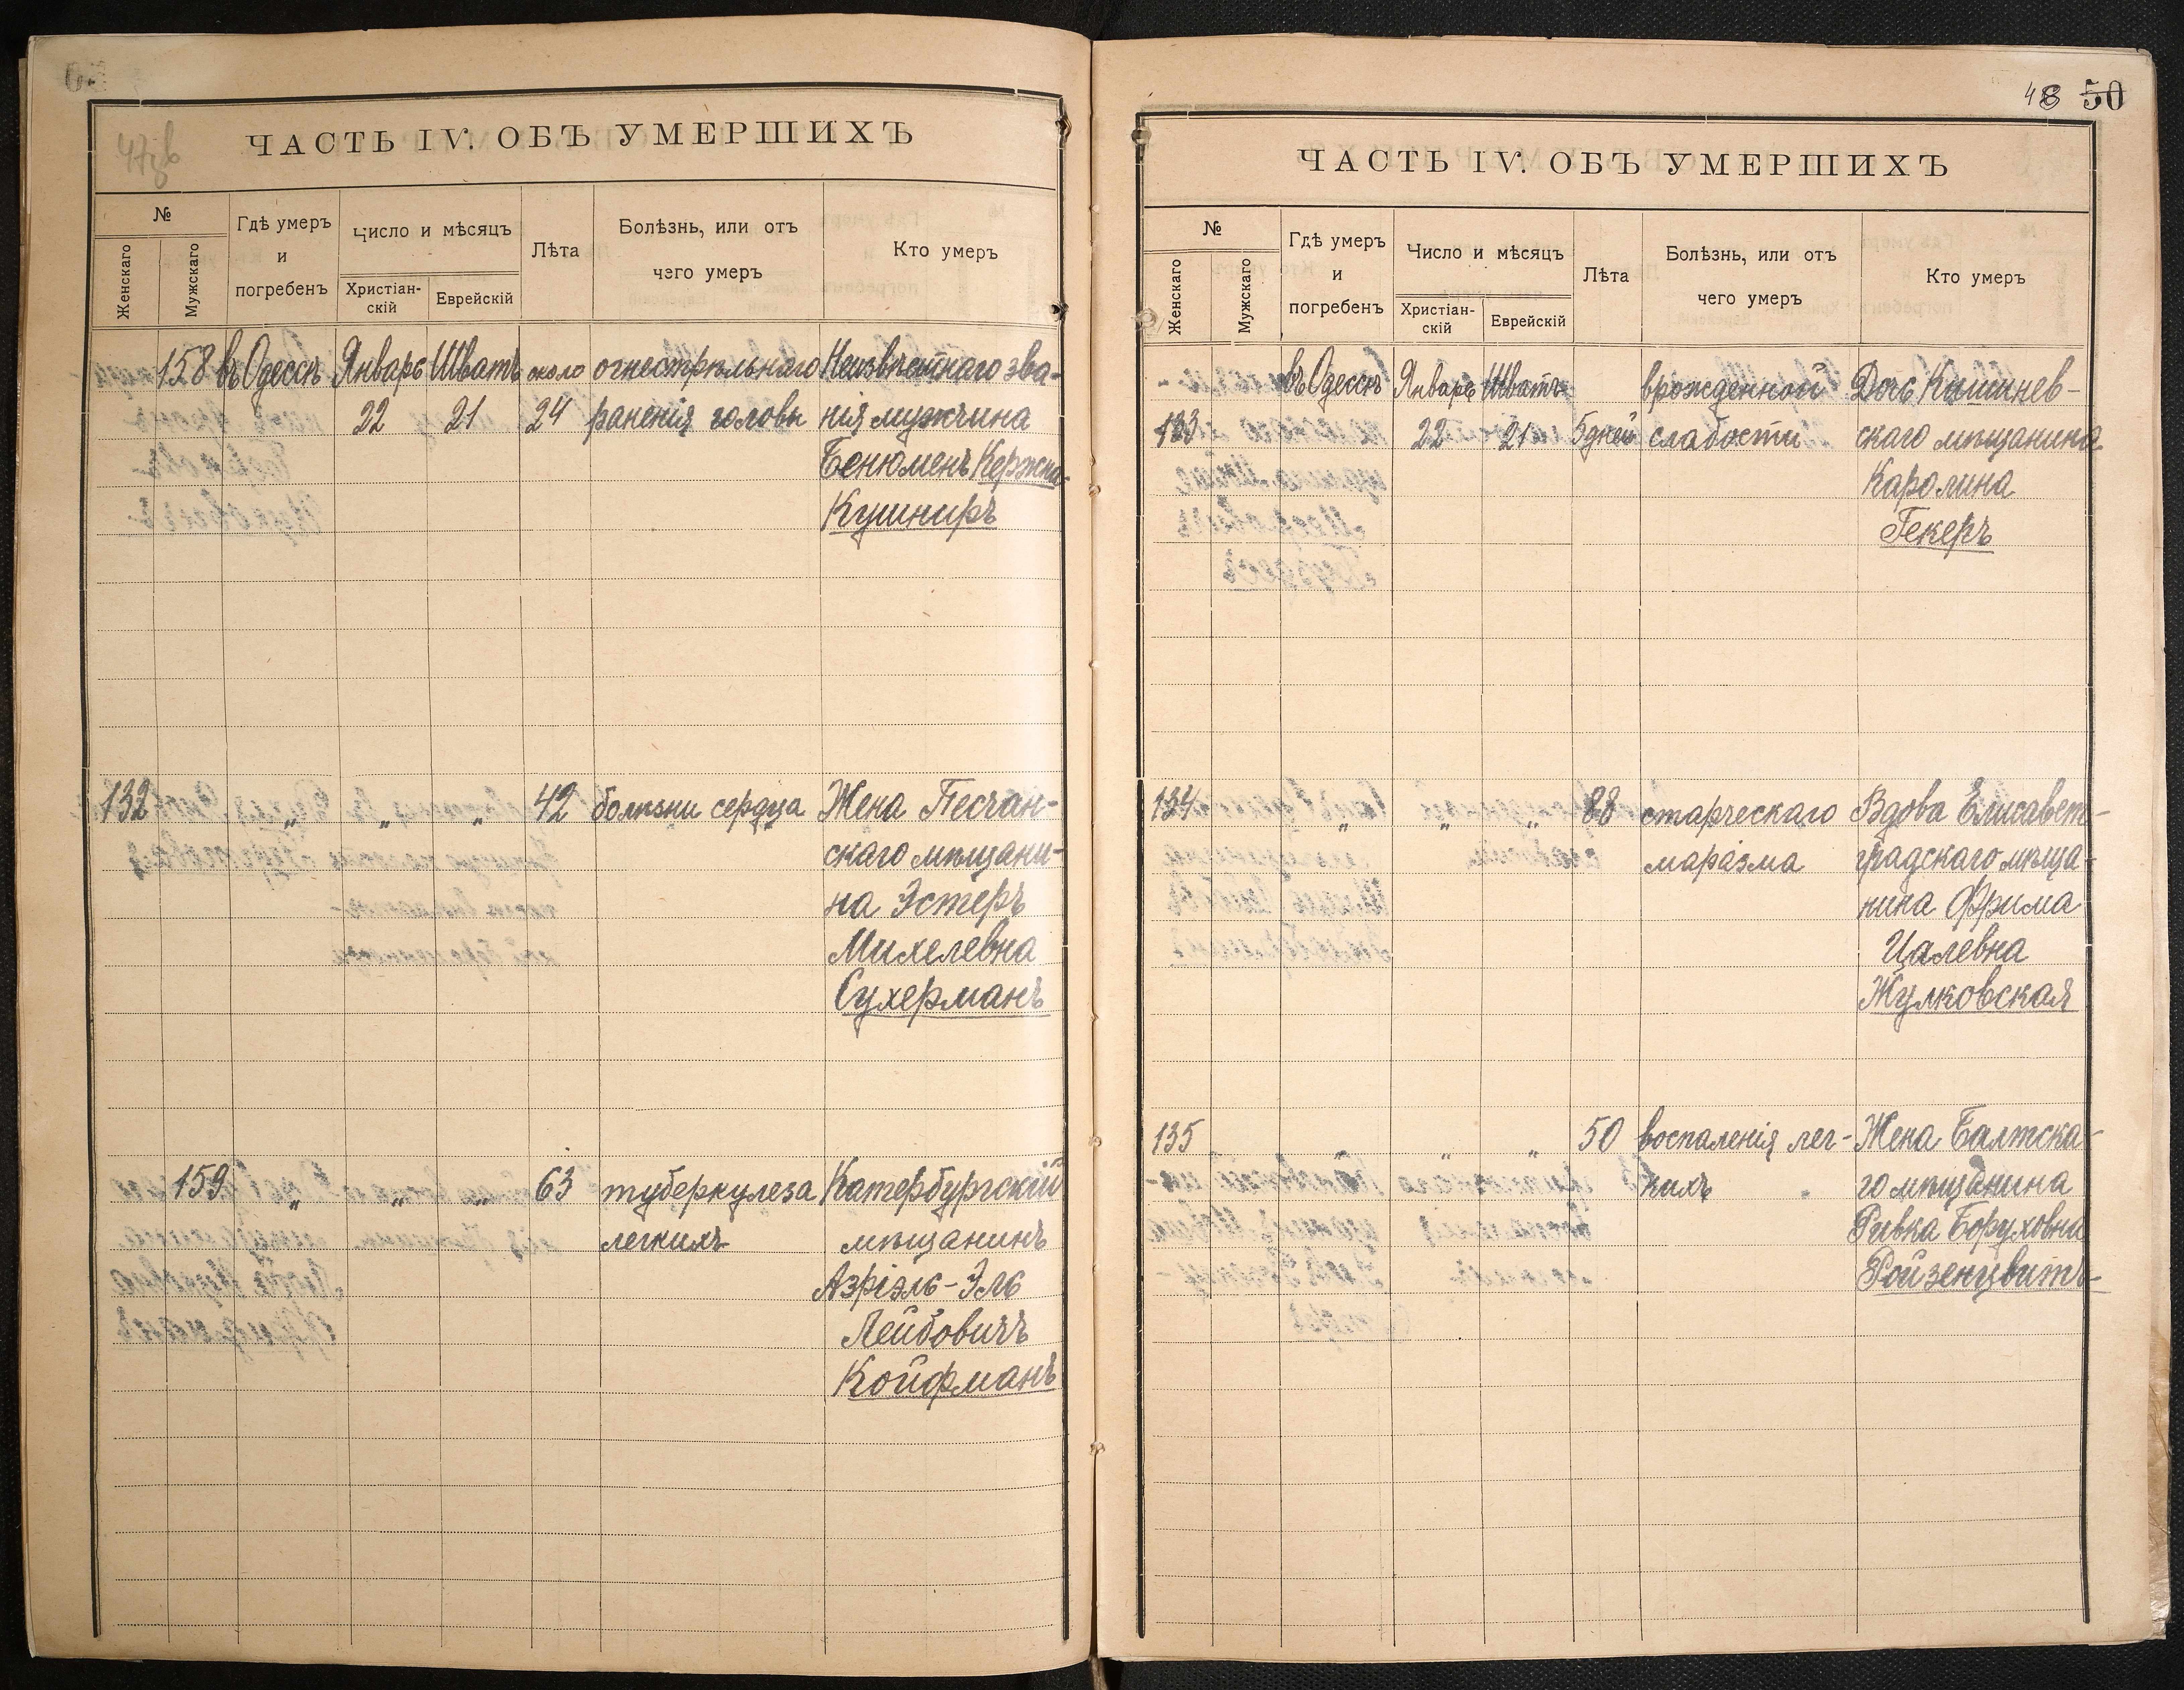 47зв
ЧАСТЬ IV. ОБЪ УМЕРШИХЪ
№
Женскаго
Мужскаго
Гдѣ умеръ
и
погребенъ
Число и мѣсяцъ
Христіан-
скій
Еврейскій
Лѣта
Болѣзнь, или отъ
чего умеръ
Кто умеръ
158 въ Одессѣ Январь Шватъ около огнестрѣльнаго Неизвѣстнаго зва-
22 21 24 раненія головы нія мужчина
Бенюменъ Кержна-
Кушниръ
132 „ „ „ 42 болѣзни сердца Жена Песчан-
скаго мѣщани-
на Эстеръ
Михелевна
Сухерманъ
159 „ „ „ 63 туберкулеза Катербургскій
легкихъ мѣщанинъ
Азріэль-Эль
Лейбовичъ
Койфманъ
48 50
ЧАСТЬ IV. ОБЪ УМЕРШИХЪ
№
Женскаго
Мужскаго
Гдѣ умеръ
и
погребенъ
Число и мѣсяцъ
Христіан-
скій
Еврейскій
Лѣта
Болѣзнь, или отъ
чего умеръ
Кто умеръ
въ Одессѣ Январь Шватъ врожденной Дочь Кишинев-
133 22 21 5 дней слабости скаго мѣщанина
Каролина
Гекеръ
134 „ „ „ 88 старческаго Вдова Елисавет-
маразма градскаго мѣща-
нина Фрима
Цалевна
Жулковская
135 „ „ „ 50 воспаленія лег- Жена Балтска-
кихъ го мѣщанина
Ривка Боруховна
Ройзенцвитъ